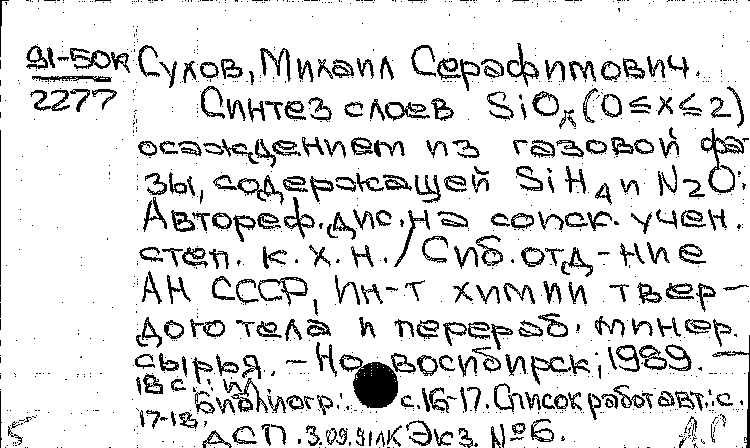 91-50к Сухов, Михаил Серафимович.
2277 Синтез слоев SiOx (0≤x≤2)
осаждением из газовой фа
зы, содержащей SiH4 и N2O:
Автореф. дис. на соиск. учен.
степ. к. х. н. / Сиб. отд-ние
АН СССР, Ин-т химии твер-
дого тела и перераб. минер.
сырья. – Новосибирск, 1989. –
18 с.: ил.
Библиогр.: с. 16-17. Список работ авт.: с.
17-18.
ДСП. 3.09.91 Экз. № 6.